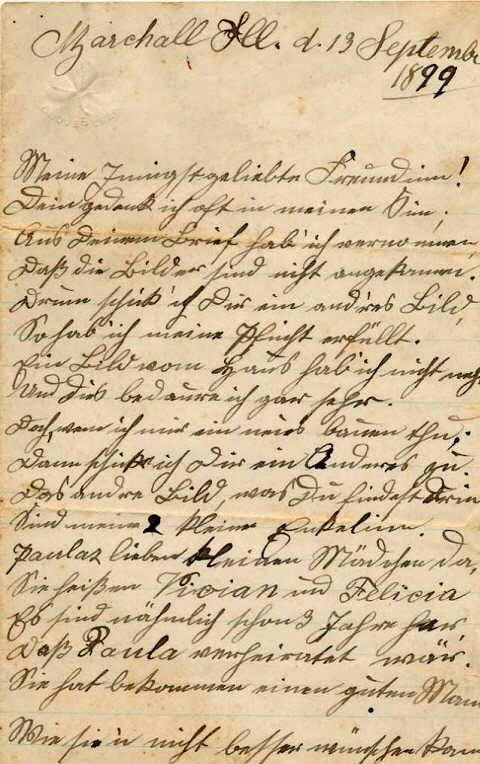 Marchall Ill. d. 13 Septembe
1899
Meine Innigst geliebte Freundinn!
Dein gedenk ich oft in meinen Sin,
Aus Deinem Brief hab' ich vernommen,
Daß die Bilder sind nicht angekommen.
Drum schick' ich Dir ein and'res Bild,
So hab' ich meine Pflicht erfüllt.
Ein Bild vom Haus hab' ich nicht meh
Und dies bedaure ich gar sehr.
Doch, wen ich mir ein neues bauen thu,
Dann schick ich Dir ein Anderes zu.
Das andre Bild, was Du findest drin
Sind meine 2 kleine Enkelinn.
Paulas lieben kleinen Mädchen da,
Sie heißen Vivian und Felicia
Es sind nähmlich schon 3 Jahre her
Daß Paula verheiratet wär.
Sie hat bekommen einen guten Man
Wie sie'n nicht besser wünschen kann